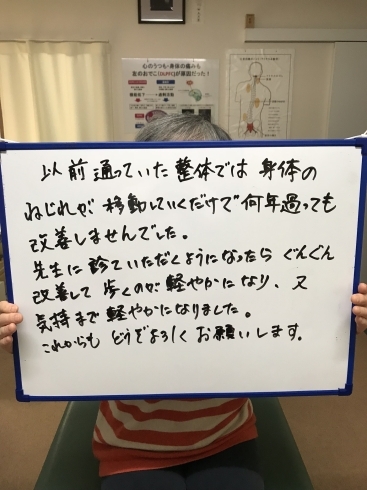 心のうつも・身体の痛みも
以前通っていた整体では身体の
ねじれが移動していくだけで何年過っても
改善しませんでした。
先生に診ていただくようになったらぐんぐん
改善して歩くのが軽やかになり、又
気持まで軽やかになりました。
これからもどうぞよろしくお願いします。